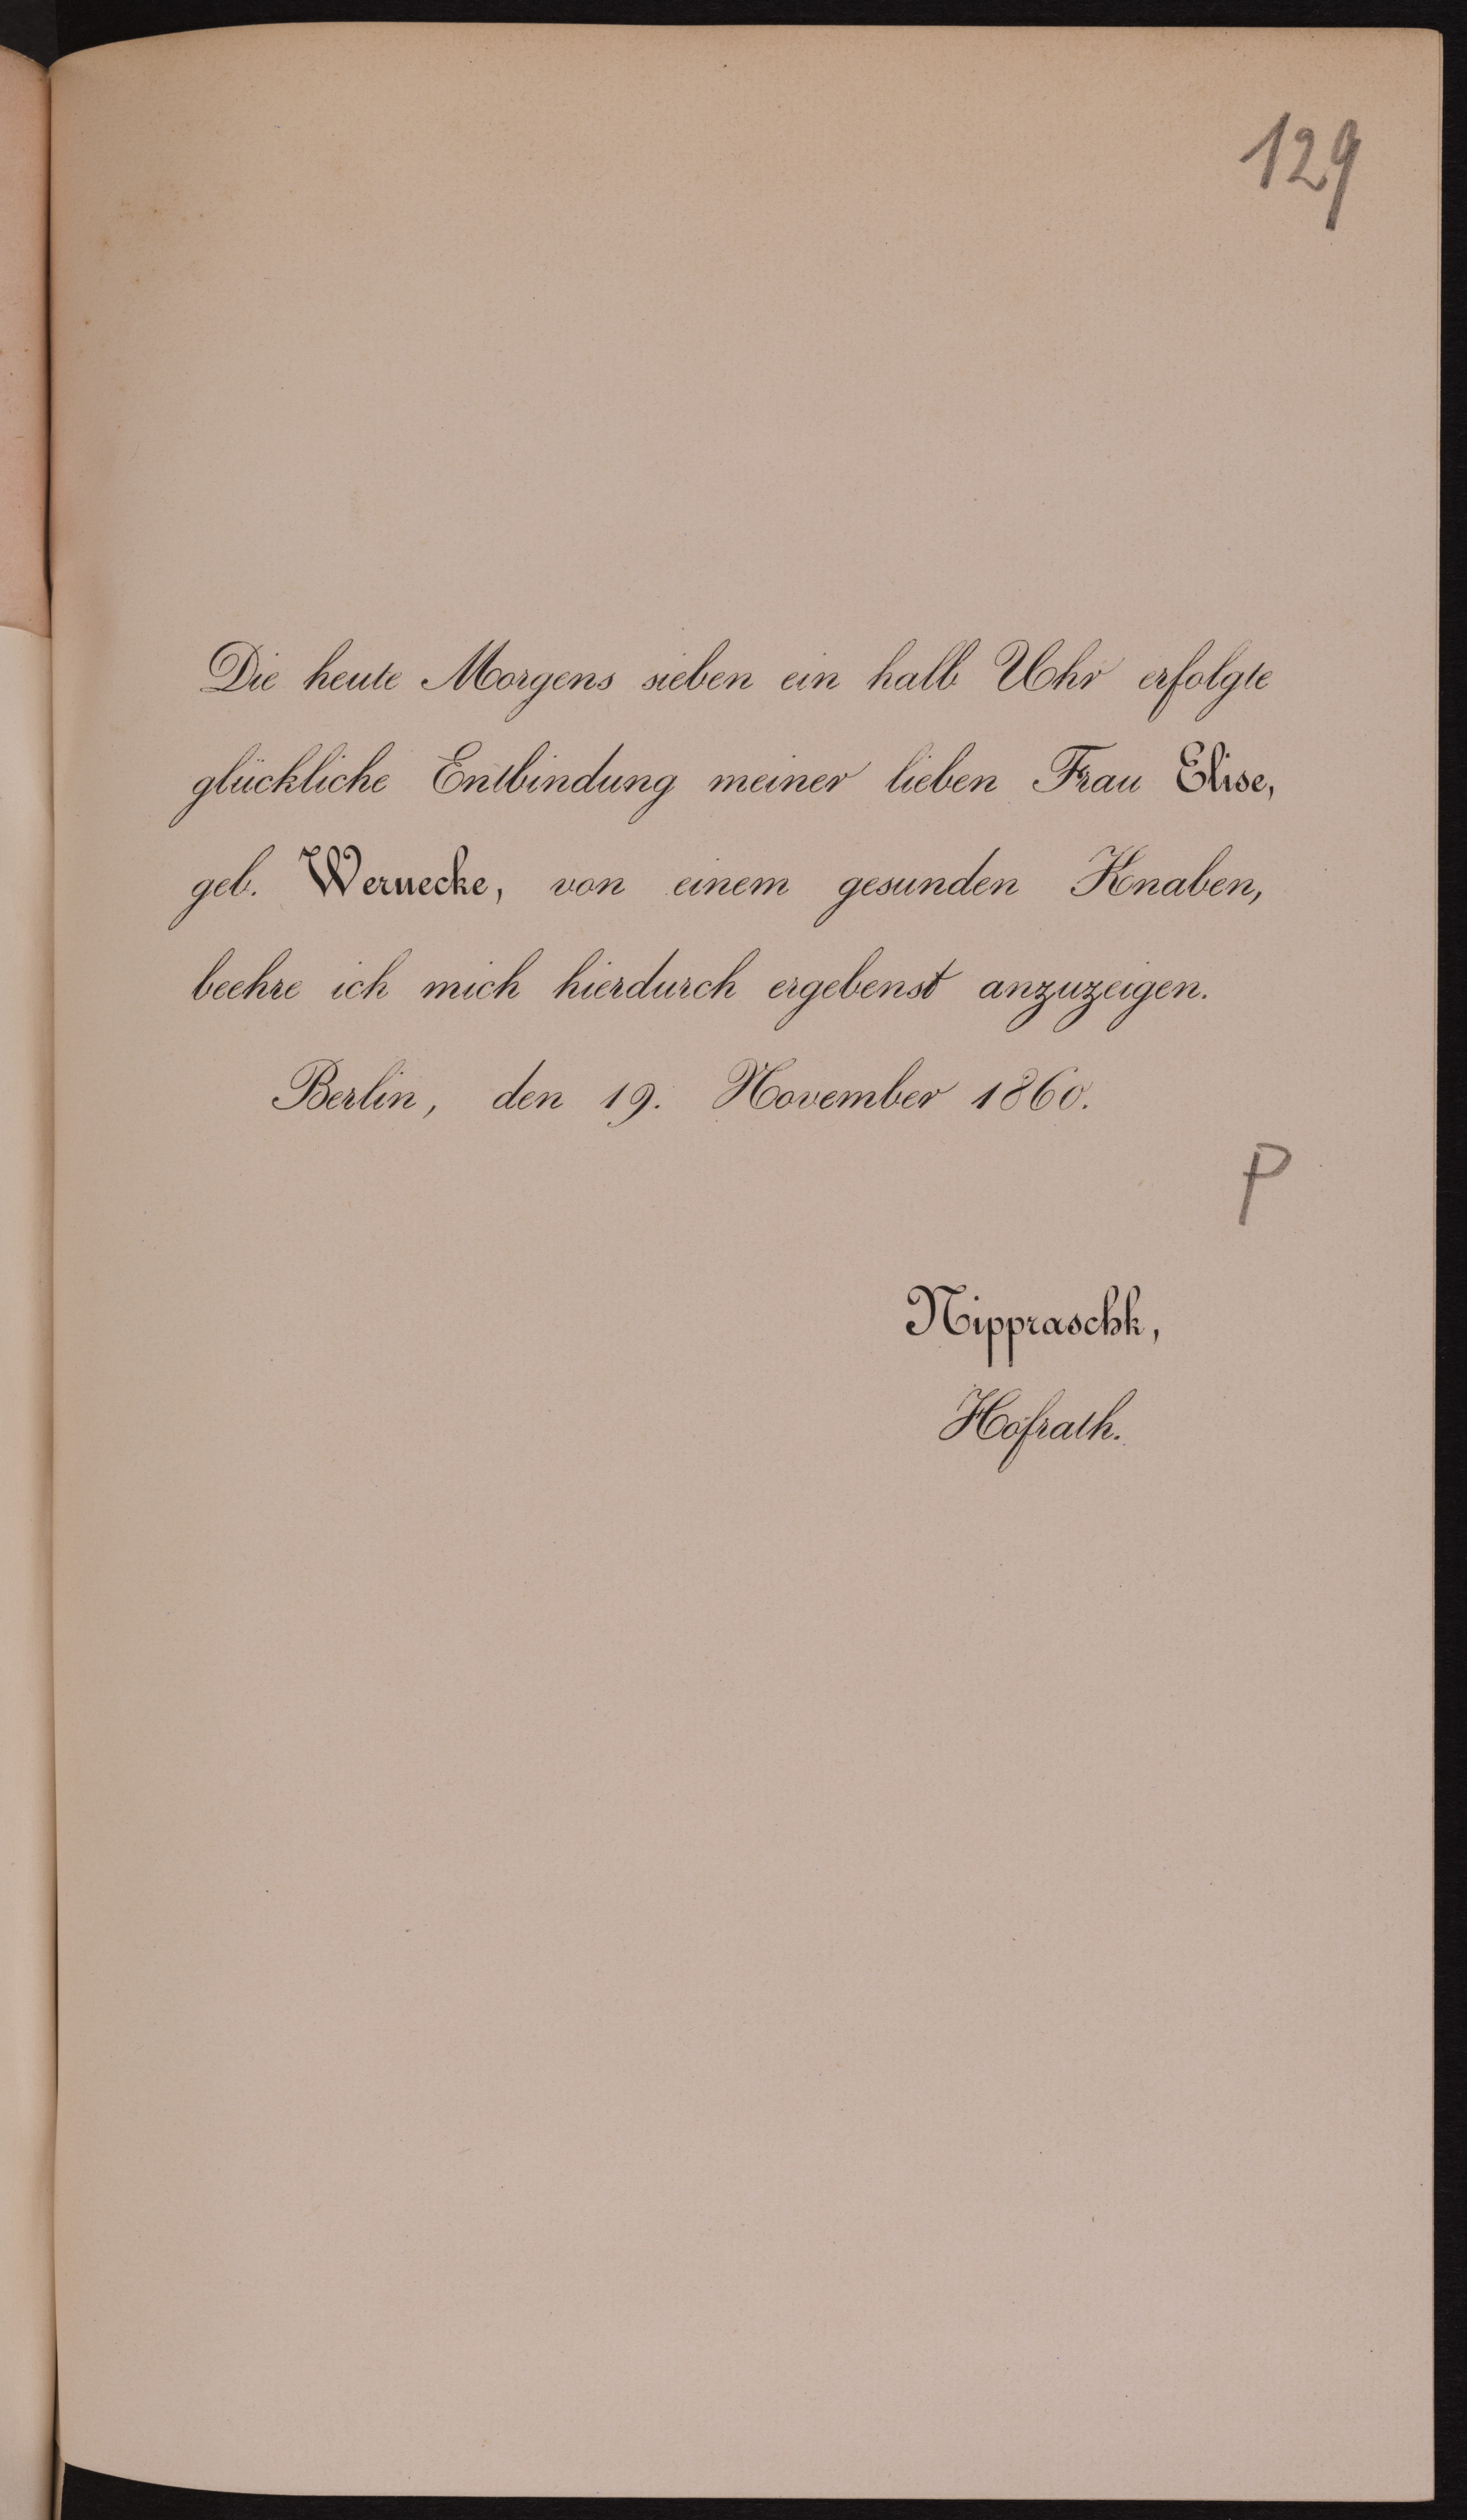 129
Die heute Morgens sieben ein halb Uhr erfolgte
glückliche Entbindung meiner lieben Frau Elise,
geb. Wernecke, von einem gesunden Knaben,
beehre ich mich hierdurch ergebenst anzuzeigen.
Berlin, den 19. November 1860.
P
Nippraschk,
Hofrath.